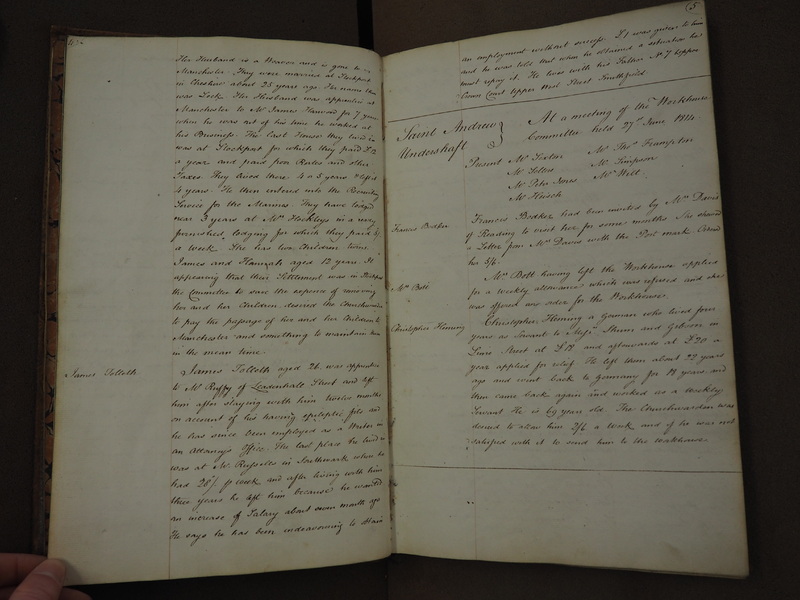 Her Husband is a Weaver and is gone to
Manchester. They were married at Stockport
in Cheshire about 25 years ago. Her name then
was Lock. Her Husband was apprentice at
Manchester to Mr James Harwood for 7 years
when he was out of his time he worked at
his Business. The last House they lived in
was at Stockport for which they paid £12
a year and paid poor Rates and other
Taxes. They lived there 4 or 5 years & left it
4 years. He then entered into the Recruiting
Service for the Marines. They have lodged
near 3 years at Mrs in a ready
furnished lodging for which they paid
a week. She has two Children twins
James and Hannah aged 12 years. It
appearing that their Settlement was in Stockport
the Committee to save the expence of removing
her and her Children desired the Churchwarden
to pay the passage of her and her Children to
Manchester and something to maintain them
in the mean time.
James Tolloth
James Tolloth aged 26 was apprentice
to Mr Ruffy of Leadenhall Street and left
him after staying with him twelve months
on account of his having epileptic fits and
he has since been employed as a Writer in
an Attorneys Office. The last place he lived in
was at Mr Russells in Southwark where he
had 28/ p week and after living with him
three years he left him because he wanted
an increase of Salary about seven months ago
He says he has been endeavouring to obtain
5
an employment without success. £1 was given to him
and he was told that when he obtained a situation he
must repay it. He lives with his Father No 7 Upper
Crown Court Upper West Street Smithfield.
Saint Andrew
Undershaft
At a meeting of the Workhouse
Committee held 27th June 1814
Present Mr Mr Thos Frampton
Mr Sellers Mr Simpson
Mr Peter Jones Mr Will
Mr
Frances Bodker
Frances Bodker had been invited by Mrs Davis
of Reading to visit her for some months She shewed
a Letter from Mrs Davis with the Post mark
her 5/6.
Mrs Bott
Mrs Bott having left the Workhouse applied
for a weekly allowance which was refused and she
was offered an order for the Workhouse.
Christopher Heming
Christopher Heming a German who lived four
years as Servant to Messrs and Gibson in
Lime Street at £18 and afterwards at £20 a
year applied for relief. He left them about 22 years
ago and went back to Germany for 14 years and
then came back again and worked as a Weekly
Servant He is 69 years old. The Churchwarden was
desired to allow him 2/6 a week and if he was not
satisfied with it to send him to the Workhouse.